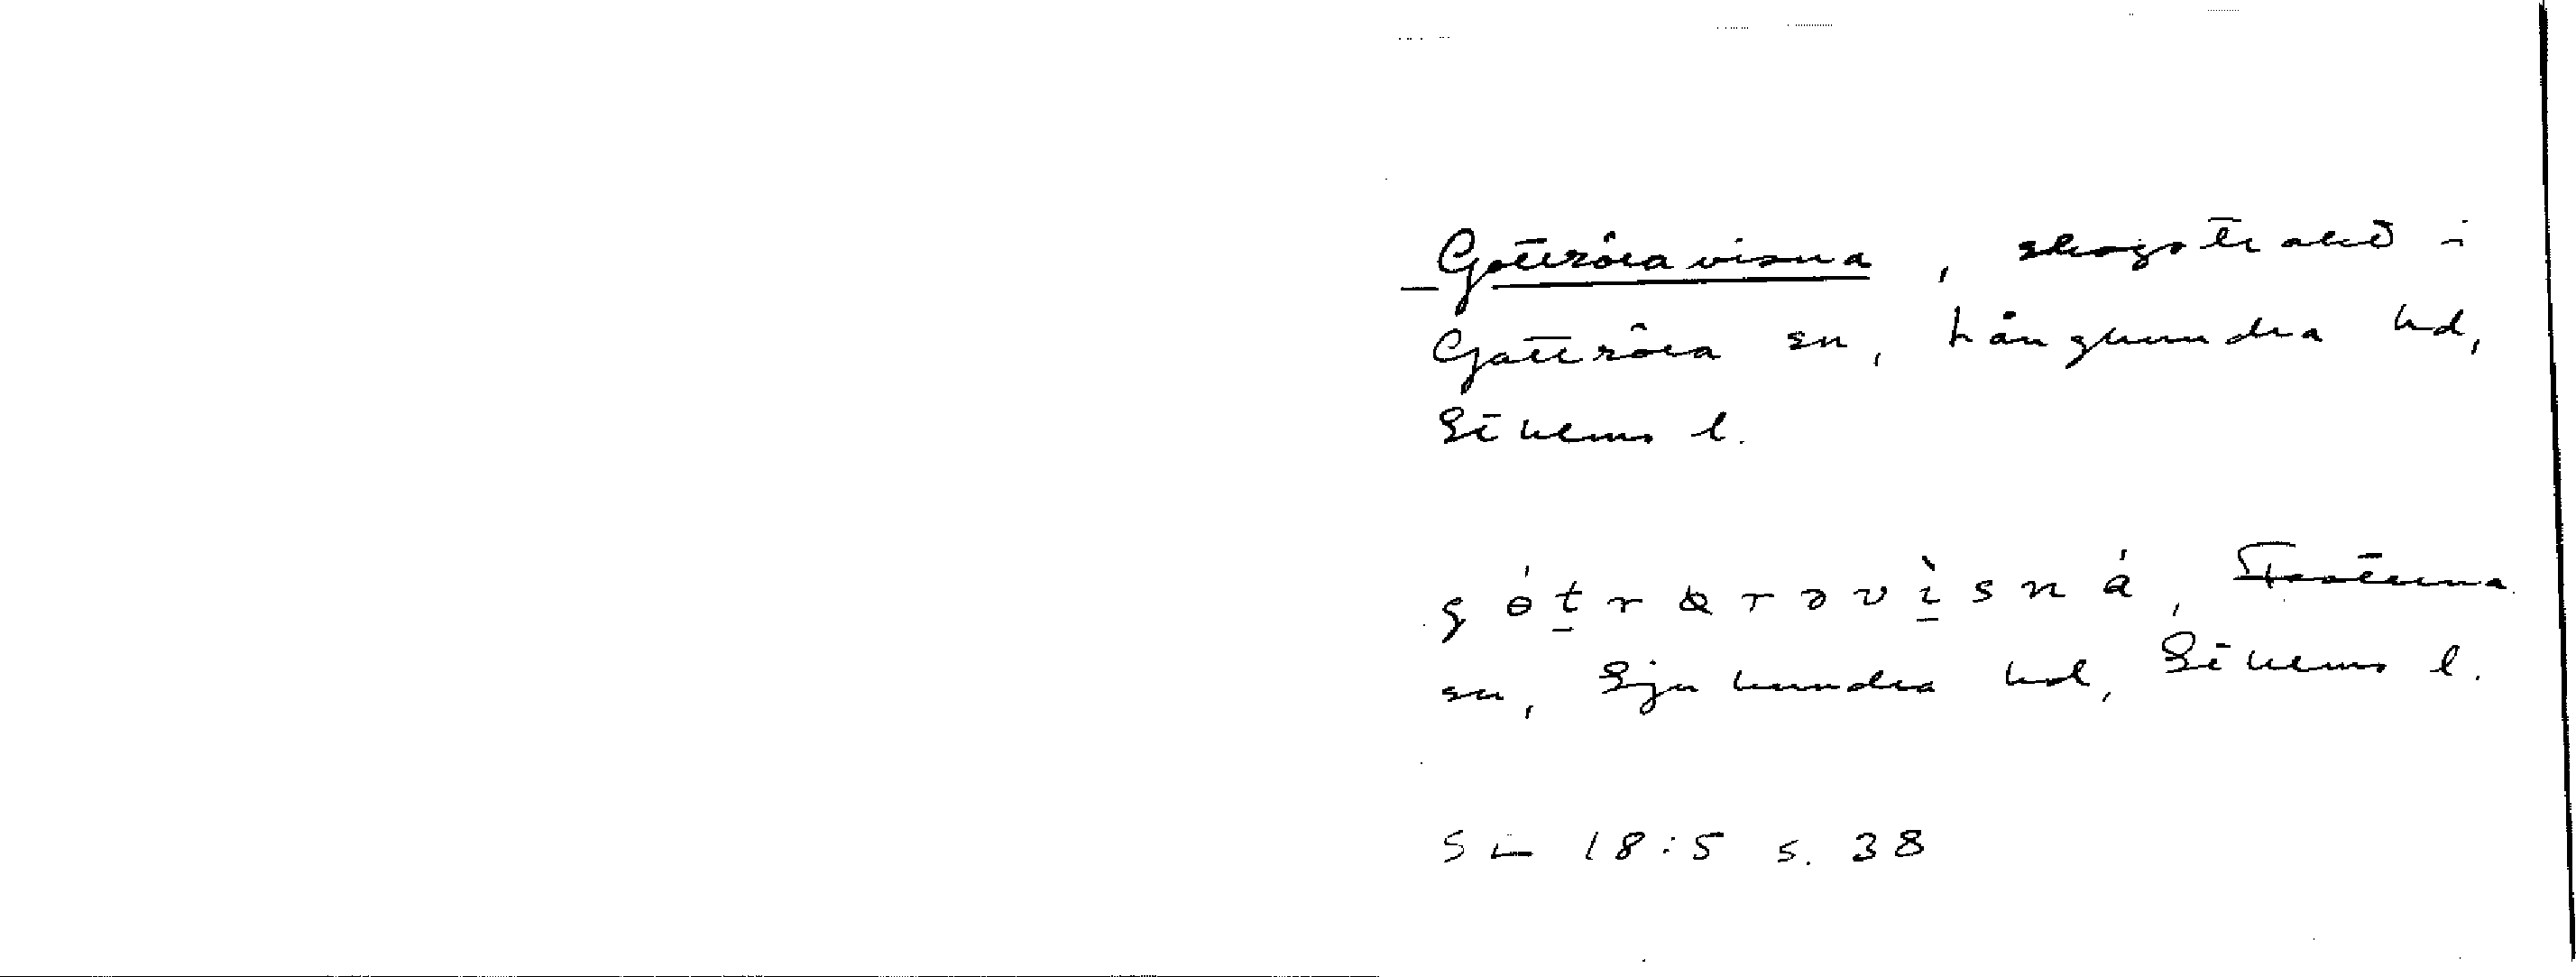 Gottröravisna, skogstrakt i
Gottröra sn, Långhundra hd,
Sthlms l.
gótrɵrəvìsná, Frötuna
sn, Sjuhundra hd, Sthlms l.
SL 18:5 s. 38